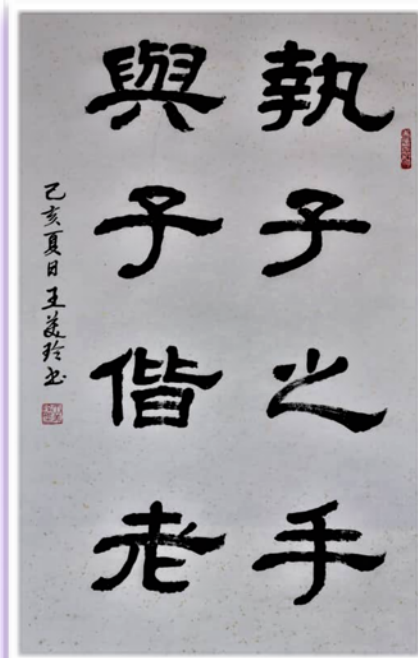 執子之手
與子偕老
己亥夏日王美玲书